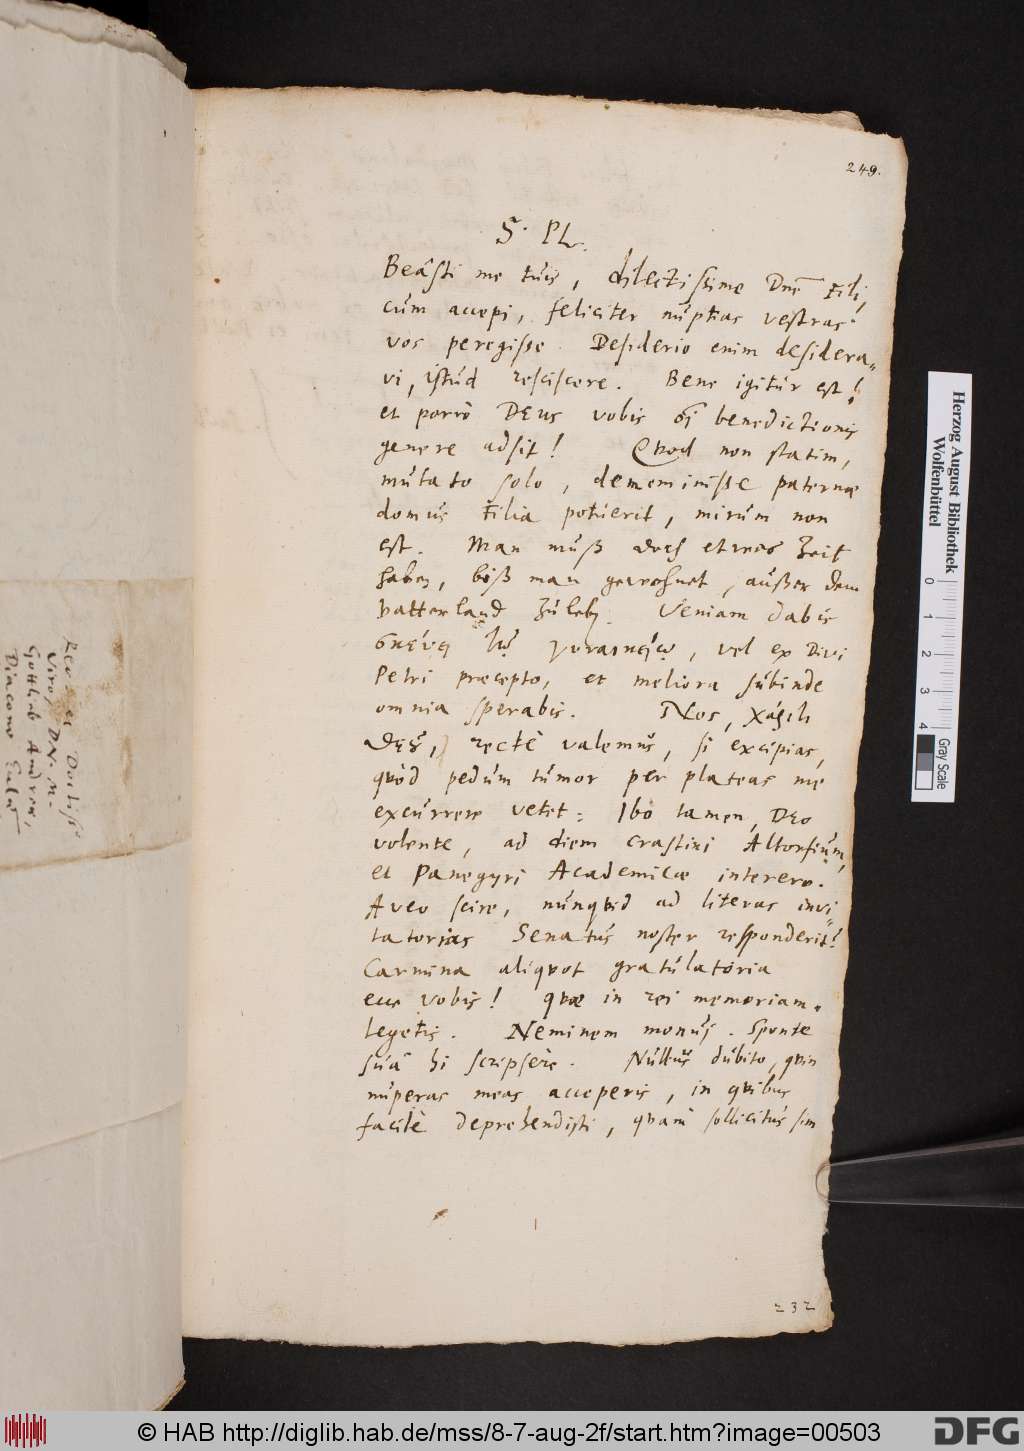 249.
S. Pl.
Beasti me tuis, dilectissime Dne Fili,
cum accepi, feliciter nuptias vestras
vos peregisse. Desiderio enim desidera-
vi, istud resciscere. Bene igitur est!
et porrò Deus vobis benedictionis
genere adsit! Quod non statim,
mutato solo, dememinisse paternae
domus Filia potuerit, mirum non
est. Man muß doch etwas Zeit
haben, biß man gewohnet, außer dem
Vatterland zu leben. Veniam dabis
vel ex Divi
Petri praecepto, et meliora subinde
omnia sperabis. Nos, χάριτι
rectè valemus, si excipias,
quòd pedum tumor per plateas me
excurrere vetet: Ibo tamen, Deo
volente, ad diem crastini Altorfium,
et Panegyri Academicae interero.
Aveo scire, nunquid ad literas invi-
tatorias Senatus noster responderit?
Carmina aliquot gratulatoria
ecce vobis! quae in rei memoriam
legetis. Neminem monui. Sponte
suâ hi scripsêre. Nullus dubito, quin
nuperas meas acceperis, in quibus
facilè deprehendisti, quàm sollicitus sim
232
Viro, Dn. M.
Gottlieb Andreae,
Diacono
Herzog August Bibliothek
Wolfenbüttel
0 1 2 3 4
Gray Scale
© HAB http://diglib.hab.de/mss/8-7-aug-2f/start.htm?image=00503
DFG